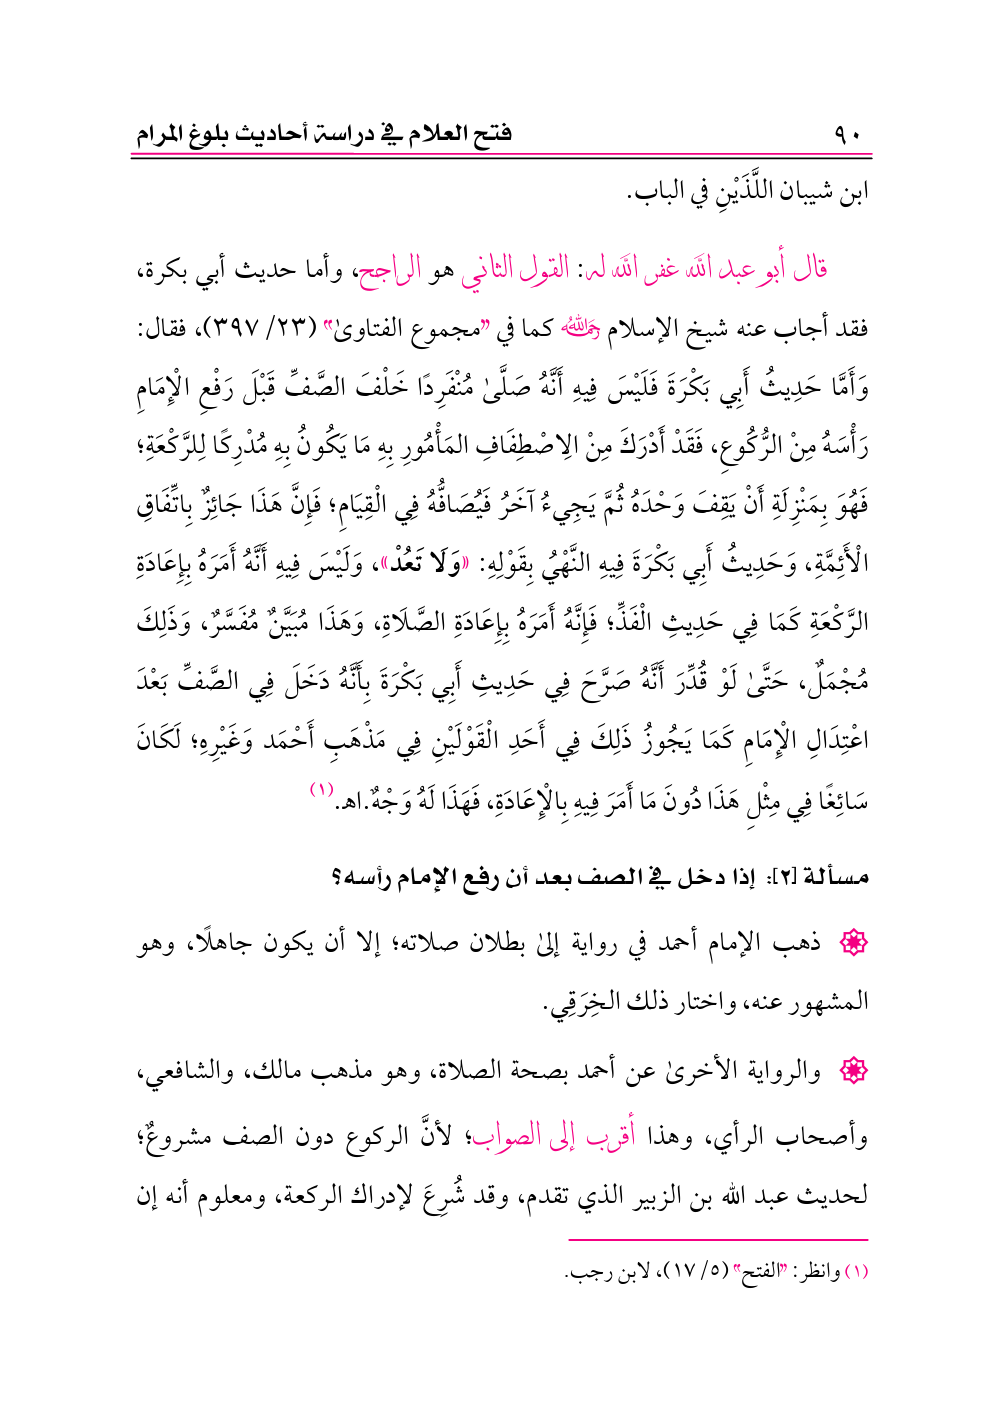 ٩٠ فتح العلام في دراسة أحاديث بلوغ المرام
ابن شيبان اللَّذَيْنِ في الباب.
قال أبو عبد الله غفر الله له: القول الثاني هو الراجح، وأما حديث أبي بكرة،
فقد أجاب عنه شيخ الإسلام رحمه الله كما في "مجموع الفتاوىٰ" (٢٣/ ٣٩٧)، فقال:
وَأَمَّا حَدِيثُ أَبِي بَكْرَةَ فَلَيْسَ فِيهِ أَنَّهُ صَلَّىٰ مُنْفَرِدًا خَلْفَ الصَّفِّ قَبْلَ رَفْعِ الْإِمَامِ
رَأْسَهُ مِنْ الرُّكُوعِ، فَقَدْ أَدْرَكَ مِنْ الِاصْطِفَافِ المَأْمُورِ بِهِ مَا يَكُونُ بِهِ مُدْرِكًا لِلرَّكْعَةِ؛
فَهُوَ بِمَنْزِلَةِ أَنْ يَقِفَ وَحْدَهُ ثُمَّ يَجِيءُ آخَرُ فَيُصَافُّهُ فِي الْقِيَامِ؛ فَإِنَّ هَذَا جَائِزٌ بِاتِّفَاقِ
الْأَئِمَّةِ، وَحَدِيثُ أَبِي بَكْرَةَ فِيهِ النَّهْيُ بِقَوْلِهِ: «وَلَا تَعُدْ»، وَلَيْسَ فِيهِ أَنَّهُ أَمَرَهُ بِإِعَادَةِ
الرَّكْعَةِ كَمَا فِي حَدِيثِ الْفَذِّ؛ فَإِنَّهُ أَمَرَهُ بِإِعَادَةِ الصَّلَاةِ، وَهَذَا مُبَيَّنٌ مُفَسَّرٌ، وَذَلِكَ
مُجْمَلٌ، حَتَّىٰ لَوْ قُدِّرَ أَنَّهُ صَرَّحَ فِي حَدِيثِ أَبِي بَكْرَةَ بِأَنَّهُ دَخَلَ فِي الصَّفِّ بَعْدَ
اعْتِدَالِ الْإِمَامِ كَمَا يَجُوزُ ذَلِكَ فِي أَحَدِ الْقَوْلَيْنِ فِي مَذْهَبِ أَحْمَد وَغَيْرِهِ؛ لَكَانَ
سَائِغًا فِي مِثْلِ هَذَا دُونَ مَا أَمَرَ فِيهِ بِالْإِعَادَةِ، فَهَذَا لَهُ وَجْهٌ.اهـ.(١)
مسألة [٢]: إذا دخل في الصف بعد أن رفع الإمام رأسه؟
ذهب الإمام أحمد في رواية إلىٰ بطلان صلاته؛ إلا أن يكون جاهلًا، وهو
المشهور عنه، واختار ذلك الخِرَقِي.
والرواية الأخرىٰ عن أحمد بصحة الصلاة، وهو مذهب مالك، والشافعي،
وأصحاب الرأي، وهذا أقرب إلى الصواب؛ لأنَّ الركوع دون الصف مشروعٌ؛
لحديث عبد الله بن الزبير الذي تقدم، وقد شُرِعَ لإدراك الركعة، ومعلوم أنه إن
(١) وانظر: "الفتح" (٥/ ١٧)، لابن رجب.